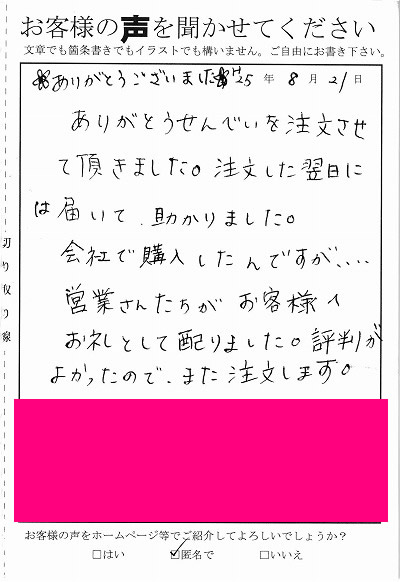 お客様の声を聞かせてください
文章でも箇条書きでもイラストでも構いません。ご自由にお書き下さい。
ありがとうございました H25年8月21日
ありがとうせんべいを注文させ
て頂きました。注文した翌日に
は届いて、助かりました。
会社で購入したんですが、...
営業さんたちがお客様へ
お礼として配りました。評判が
よかったので、また注文します。
切り取り線
お客様の声をホームページ等でご紹介してよろしいでしょうか?
□はい ☑匿名で □いいえ